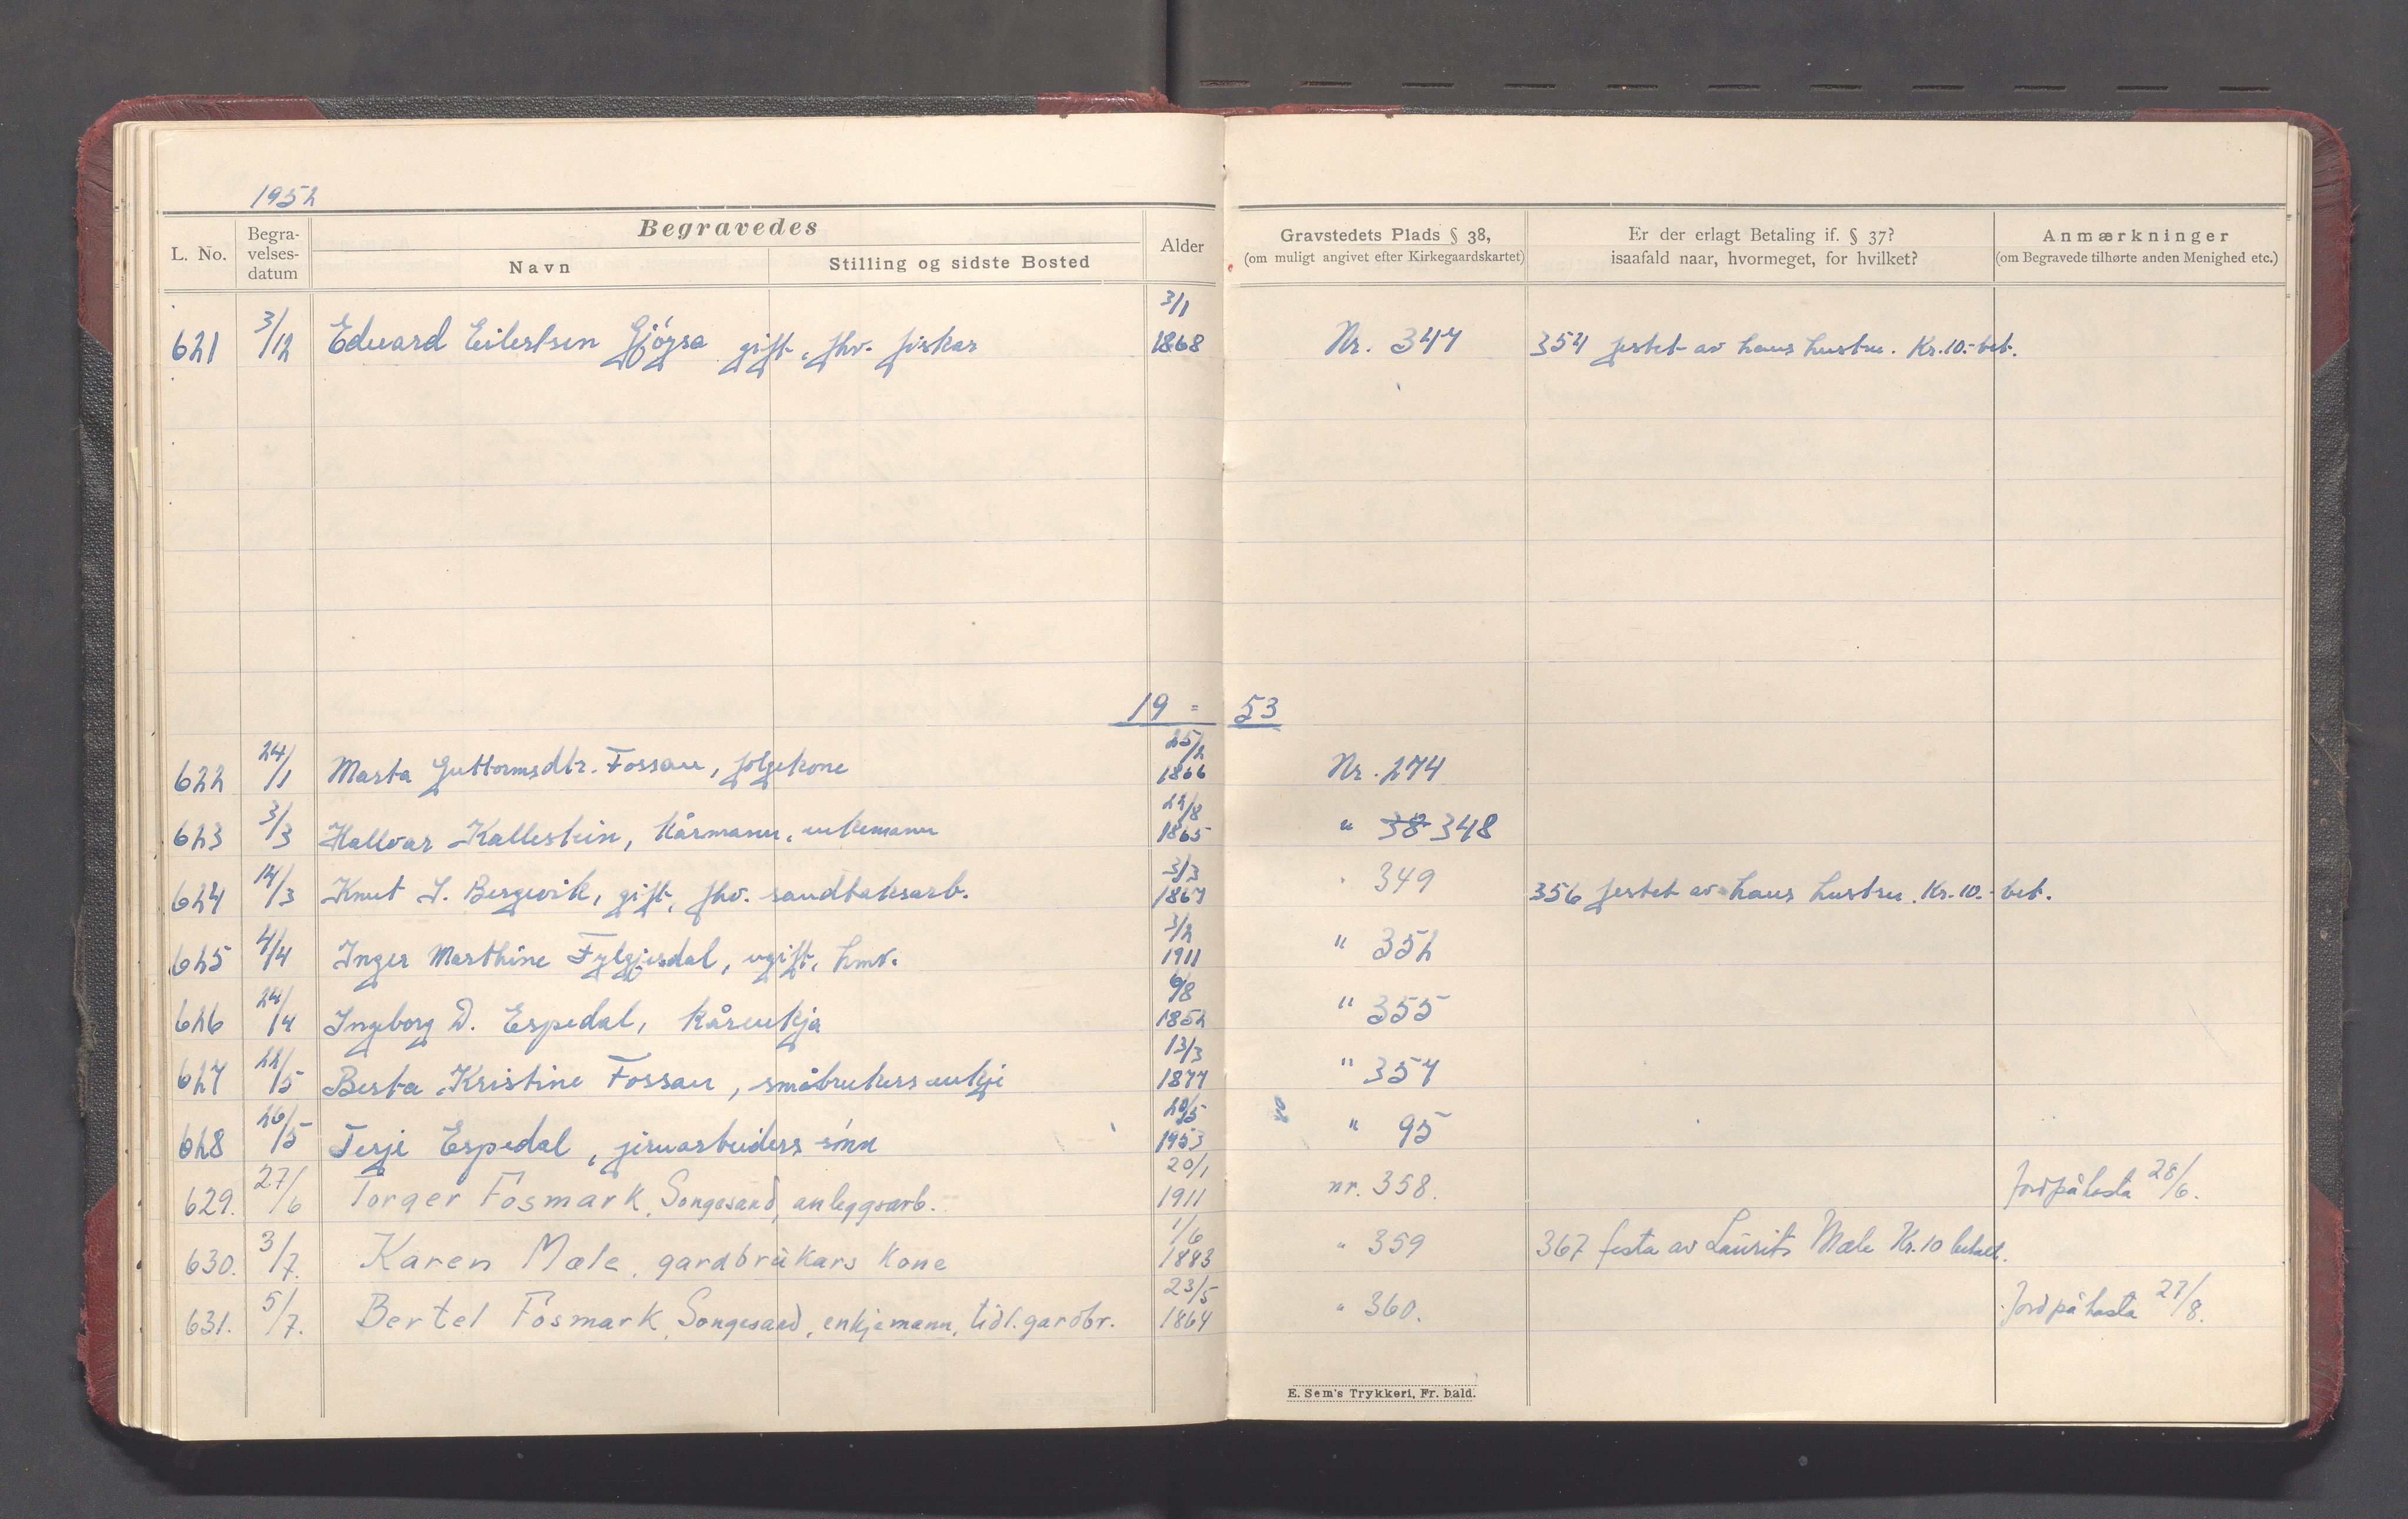 1952
L. No.
Begra-
velses-
datum
Begravedes
Navn
Stilling og sidste Bosted
Alder
Gravstedets Plads § 38,
(om muligt angivet efter Kirkegaardskartet)
Er der erlagt Betaling if. § 37?
isaafald naar, hvormeget, for hvilket?
Anmærkninger
(om Begravede tilhørte anden Menighed etc.)
621 3/12 Edvard Eilertsen Gjøysa gift, fhv. fiskar 3/1 1868 Nr. 347 354 festet av hans hustru. Kr. 10.- bet.
19 = 53
622 24/1 Marta Guttormsdtr. Fossan, følgekone 25/2 1866 Nr. 274
623 3/3 Hallvar Kallestein, kårmann, enkemann 22/8 1865 " 38 348
624 14/3 Knut I. Bergevik, gift, fhv. sandtaksarb. 3/3 1867 " 349 356 festet av hans hustru. Kr. 10.- bet.
625 4/4 Inger Marthine Fylgjesdal, ugift, hmv. 3/2 1911 " 352
626 24/4 Ingeborg D. Espedal, kårenkja 6/8 1852 " 355
627 22/5 Berta Kristine Fossan, småbrukers enkje 13/3 1877 " 357
628 26/5 Terje Espedal, jernarbeiders sønn 20/5 1953 " 95
629. 27/6 Torger Fosmark, Songesand, anleggsarb. 20/1 1911 nr. 358. Jordpåkasta 28/6.
630. 3/7. Karen Mæle, gardbrukars kone 1/6 1883 " 359 367 festa av Laurits Mæle Kr. 10 betalt.
631. 5/7. Bertel Fosmark, Songesand, enkjemann, tidl. gardbr. 23/5 1864 " 360. Jordpåkasta 27/8.
E. Sem's Trykkeri, Fr. hald.